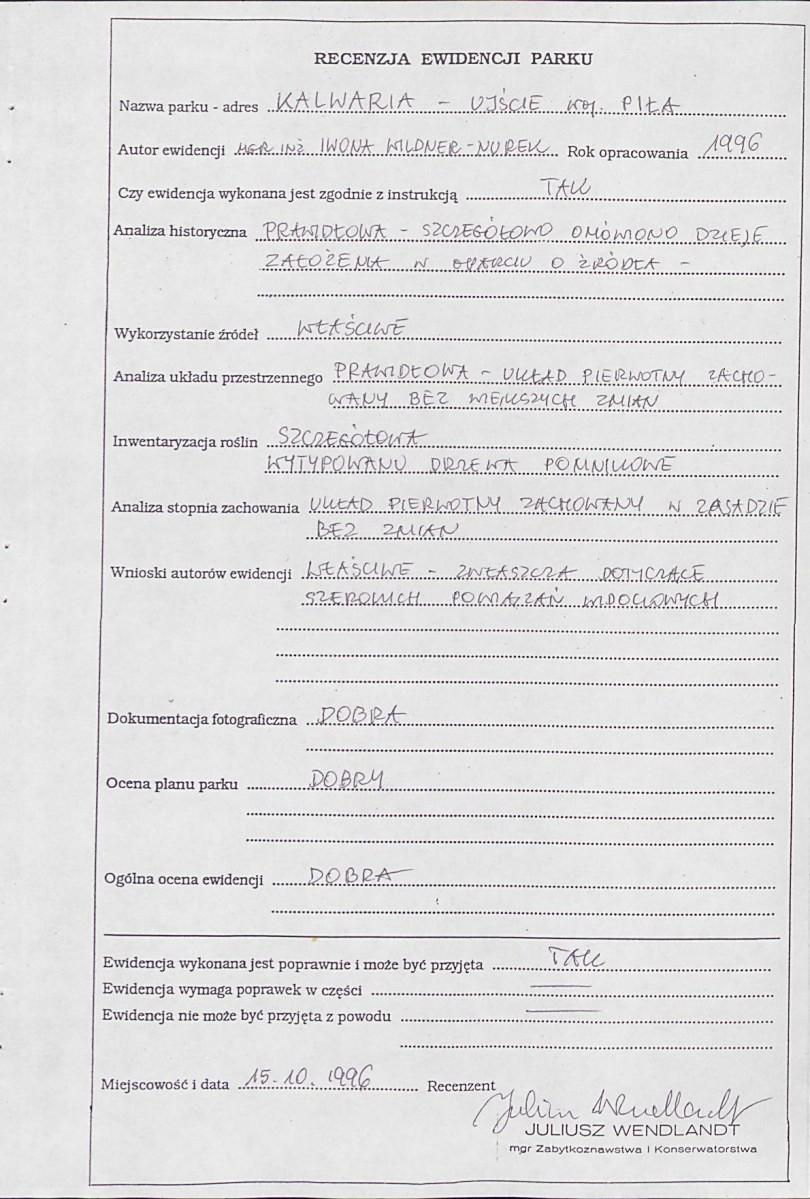 RECENZJA EWIDENCJI PARKU
Nazwa parku - adres KALWARIA - UJŚCIE woj. PIŁA
Autor ewidencji MGR INŻ IWONA WILDNER-NUREK Rok opracowania 1996
Czy ewidencja wykonana jest zgodnie z instrukcją TAK
Analiza historyczna PRAWIDŁOWA - SZCZEGÓŁOWO OMÓWIONO DZIEJE
ZAŁOŻENIA W OPARCIU O ŹRÓDŁA -
Wykorzystanie źródeł WŁAŚCIWE
Analiza układu przestrzennego PRAWIDŁOWA - UKŁAD PIERWOTNY ZACHO-
WANY BEZ WIĘKSZYCH ZMIAN
Inwentaryzacja roślin SZCZEGÓŁOWA
WYTYPOWANO DRZEWA POMNIKOWE
Analiza stopnia zachowania UKŁAD PIERWOTNY ZACHOWANY W ZASADZIE
BEZ ZMIAN
Wnioski autorów ewidencji WŁAŚCIWE - ZWŁASZCZA DOTYCZĄCE
SZEROKICH POWIĄZAŃ WIDOKOWYCH
Dokumentacja fotograficzna DOBRA
Ocena planu parku DOBRY
Ogólna ocena ewidencji DOBRA
Ewidencja wykonana jest poprawnie i może być przyjęta TAK
Ewidencja wymaga poprawek w części
Ewidencja nie może być przyjęta z powodu
Miejscowość i data 15.10.1996 Recenzent
Juliusz Wendlandt
JULIUSZ WENDLANDT
mgr Zabytkoznawstwa i Konserwatorstwa